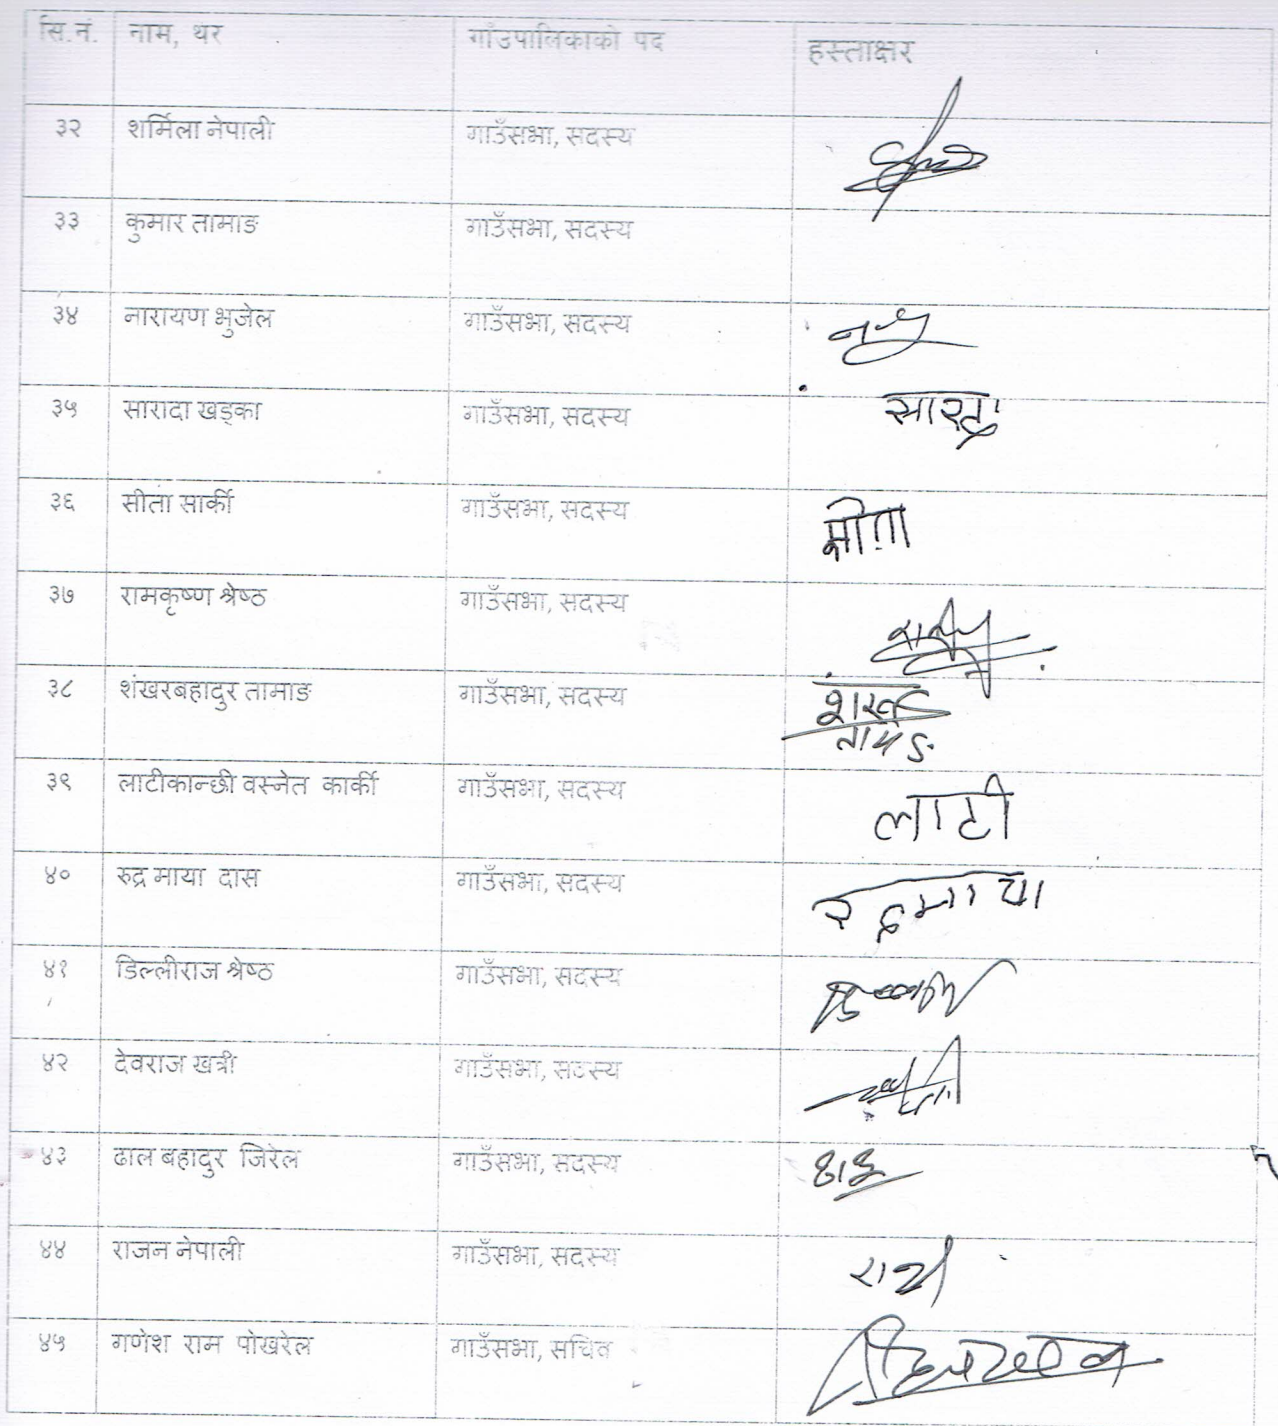 सि.नं. नाम, थर गाँउपालिकाको पद हस्ताक्षर
३२ शर्मिला नेपाली गाउँसभा, सदस्य
३३ कुमार तामाङ गाउँसभा, सदस्य
३४ नारायण भुजेल गाउँसभा, सदस्य
३५ सारादा खड्का गाउँसभा, सदस्य
३६ सीता सार्की गाउँसभा, सदस्य सीता
३७ रामकृष्ण श्रेष्ठ गाउँसभा, सदस्य
३८ शंखरबहादुर तामाङ गाउँसभा, सदस्य
३९ लाटीकान्छी वस्नेत कार्की गाउँसभा, सदस्य लाटी
४० रुद्र माया दास गाउँसभा, सदस्य
४१ डिल्लीराज श्रेष्ठ गाउँसभा, सदस्य
४२ देवराज खत्री गाउँसभा, सदस्य
४३ ढाल बहादुर जिरेल गाउँसभा, सदस्य
४४ राजन नेपाली गाउँसभा, सदस्य
४५ गणेश राम पोखरेल गाउँसभा, सचिव